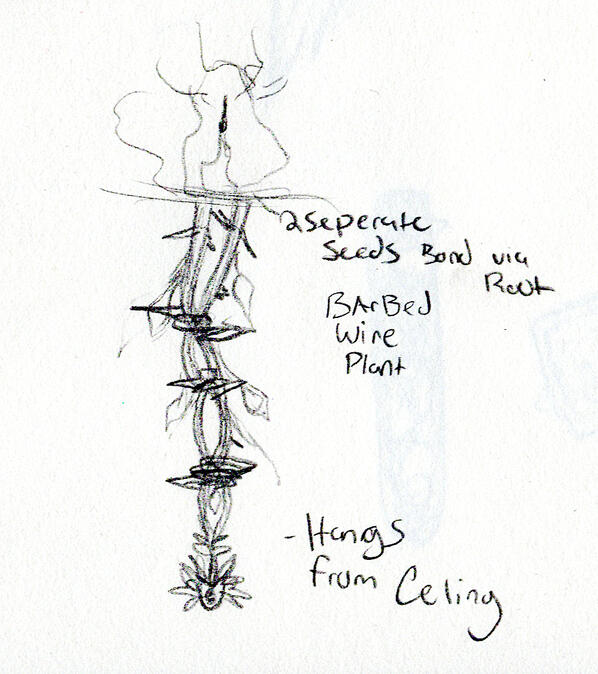 2 Seperate
Seeds Bond via
Root
BArBed
Wire
Plant
- Hangs
from Celing